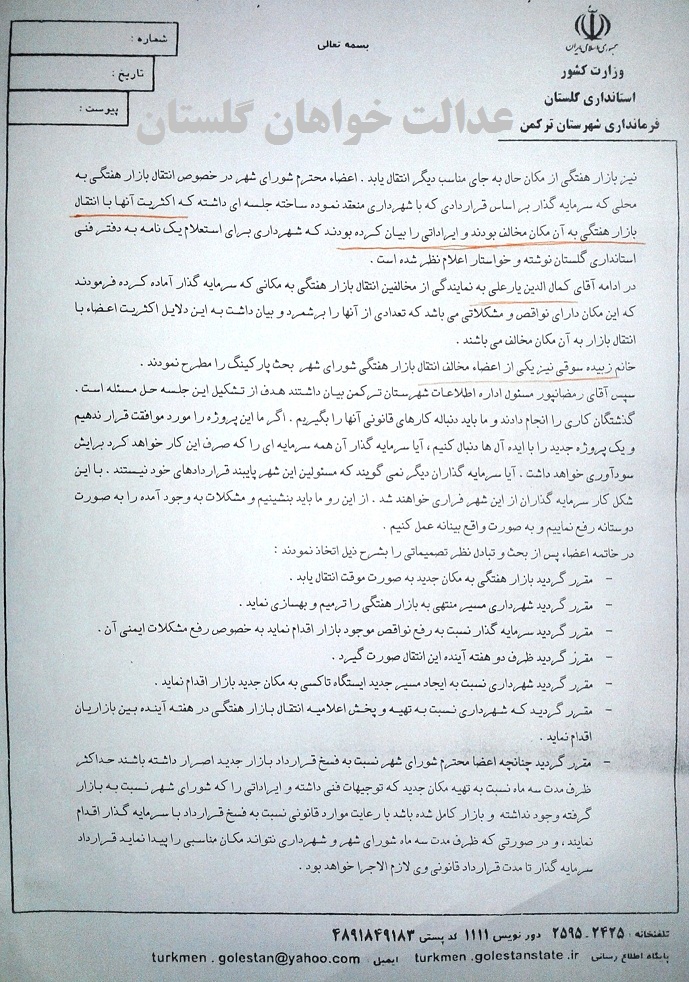 بسمه تعالی
جمهوری اسلامی ایران
وزارت کشور
استانداری گلستان
فرمانداری شهرستان ترکمن
شماره :
تاریخ :
پیوست :
عدالت خواهان گلستان
نیز بازار هفتگی از مکان حال به جای مناسب دیگر انتقال یابد . اعضاء محترم شورای شهر در خصوص انتقال بازار هفتگی به
محلی که سرمایه گذار بر اساس قراردادی که با شهرداری منعقد نموده ساخته جلسه ای داشته که اکثریت آنها با انتقال
بازار هفتگی به آن مکان مخالف بودند و ایراداتی را بیان کرده بودند که شهرداری برای استعلام یک نامه به دفتر فنی
استانداری گلستان نوشته و خواستار اعلام نظر شده است .
در ادامه آقای کمال الدین یارعلی به نمایندگی از مخالفین انتقال بازار هفتگی به مکانی که سرمایه گذار آماده کرده فرمودند
که این مکان دارای نواقص و مشکلاتی می باشد که تعدادی از آنها را برشمرد و بیان داشت به این دلایل اکثریت اعضاء با
انتقال بازار به آن مکان مخالف می باشند .
خانم زبیده سوقی نیز یکی از اعضاء مخالف انتقال بازار هفتگی شورای شهر بحث پارکینگ را مطرح نمودند .
سپس آقای رمضانپور مسئول اداره اطلاعات شهرستان ترکمن بیان داشتند هدف از تشکیل این جلسه حل مسئله است .
گذشتگان کاری را انجام دادند و ما باید دنباله کارهای قانونی آنها را بگیریم . اگر ما این پروژه را مورد موافقت قرار ندهیم
و یک پروژه جدید را با ایده آل ها دنبال کنیم ، آیا سرمایه گذار آن همه سرمایه ای را که صرف این کار خواهد کرد برایش
سودآوری خواهد داشت . آیا سرمایه گذاران دیگر نمی گویند که مسئولین این شهر پایبند قراردادهای خود نیستند . با این
شکل کار سرمایه گذاران از این شهر فراری خواهند شد . از این رو ما باید بنشینیم و مشکلات به وجود آمده را به صورت
دوستانه رفع نماییم و به صورت واقع بینانه عمل کنیم .
در خاتمه اعضاء پس از بحث و تبادل نظر تصمیماتی را بشرح ذیل اتخاذ نمودند :
– مقرر گردید بازار هفتگی به مکان جدید به صورت موقت انتقال یابد .
– مقرر گردید شهرداری مسیر منتهی به بازار هفتگی را ترمیم و بهسازی نماید .
– مقرر گردید سرمایه گذار نسبت به رفع نواقص موجود بازار اقدام نماید به خصوص رفع مشکلات ایمنی آن .
– مقرر گردید ظرف دو هفته آینده این انتقال صورت گیرد .
– مقرر گردید شهرداری نسبت به ایجاد مسیر جدید ایستگاه تاکسی به مکان جدید بازار اقدام نماید .
– مقرر گردید که شهرداری نسبت به تهیه و پخش اعلامیه انتقال بازار هفتگی در هفته آینده بین بازاریان
اقدام نماید .
– مقرر گردید چنانچه اعضا محترم شورای شهر نسبت به فسخ قرارداد بازار جدید اصرار داشته باشند حداکثر
ظرف مدت سه ماه نسبت به تهیه مکان جدید که توجیهات فنی داشته و ایراداتی را که شورای شهر نسبت به بازار
گرفته وجود نداشته و بازار کامل شده باشد با رعایت موارد قانونی نسبت به فسخ قرارداد با سرمایه گذار اقدام
نمایند ، و در صورتی که ظرف مدت سه ماه شورای شهر و شهرداری نتواند مکان مناسبی را پیدا نماید قرارداد
سرمایه گذار تا مدت قرارداد قانونی وی لازم الاجرا خواهد بود .
تلفنخانه : ۲۴۲۵ - ۲۵۹۵ دور نویس ۱۱۱۱ کد پستی ۴۸۹۱۸۴۹۱۸۳
پایگاه اطلاع رسانی turkmen .golestanstate .ir ایمیل turkmen . golestan@yahoo.com